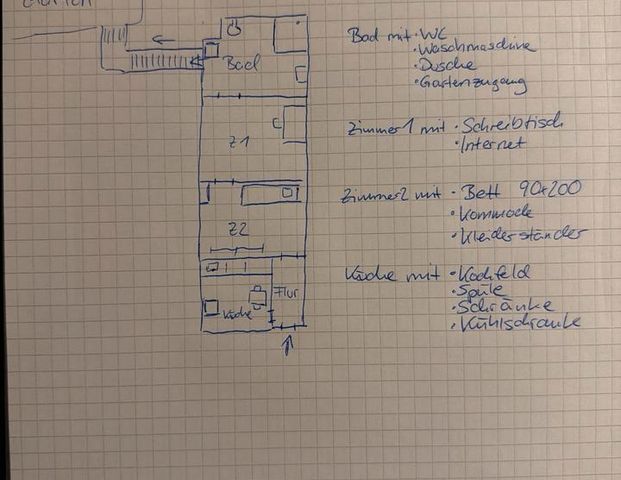 Garten
Bad mit • WC
• Waschmaschine
• Dusche
• Gartenzugang
Bad
Zimmer 1 mit • Schreibtisch
• Internet
Z1
Zimmer 2 mit • Bett 90x200
• Kommode
• Kleiderständer
Z2
Küche mit • Kochfeld
• Spüle
• Schränke
• Kühlschrank
Flur
Küche